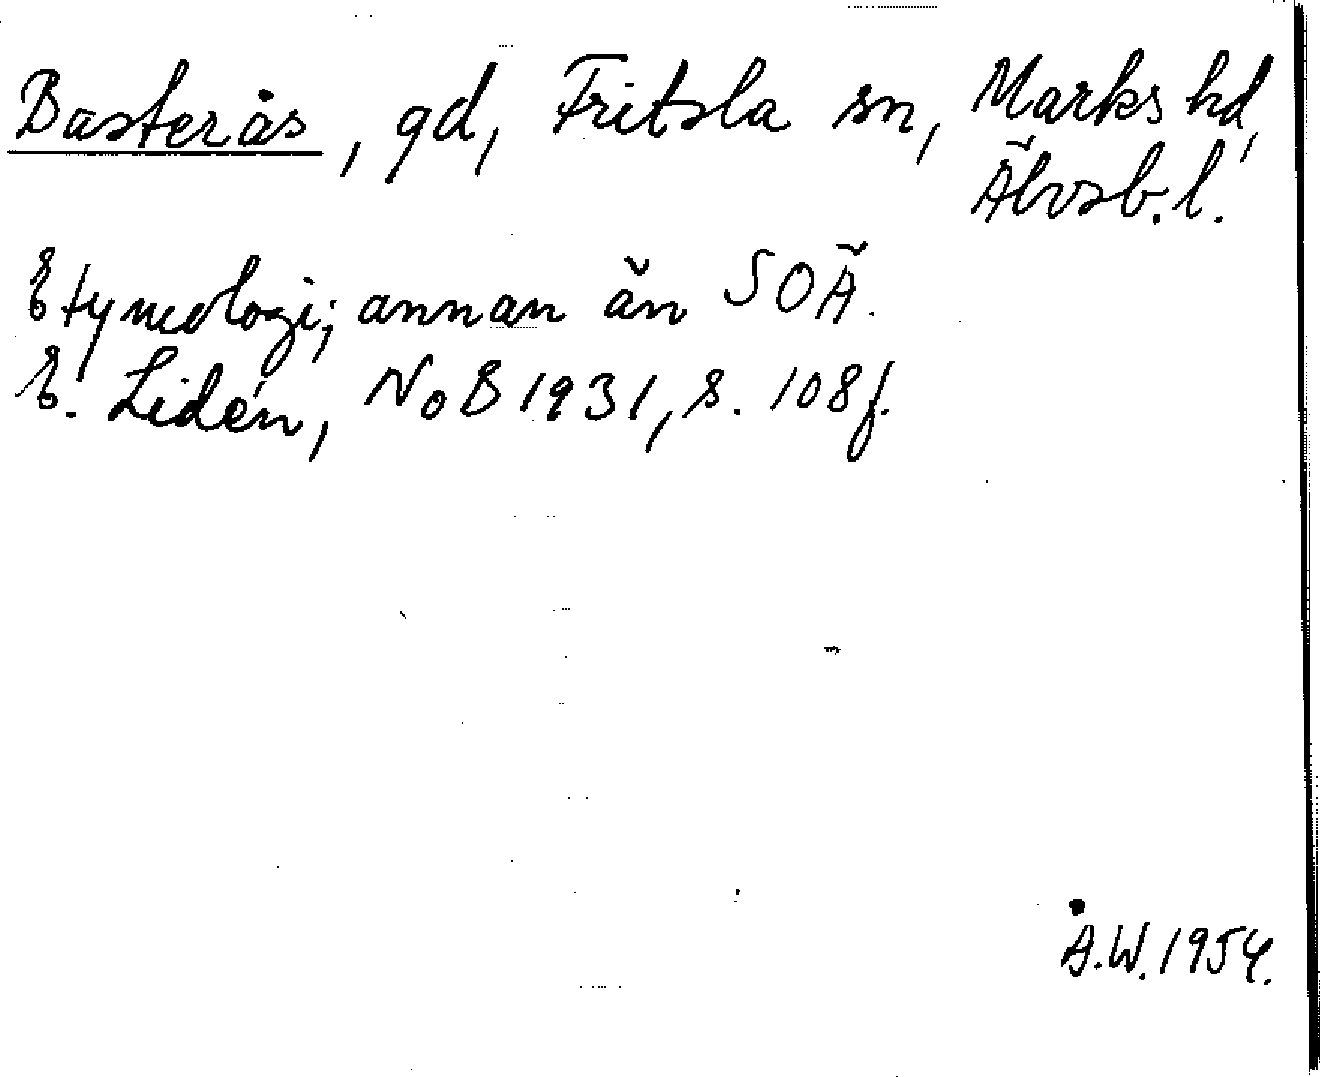 Basterås, gd, Fritsla sn, Marks hd,
Älvsb. l.
Etymologi; annan än SOÄ.
E. Lidén, NoB 1931, s. 108 f.
Å.W. 1954.